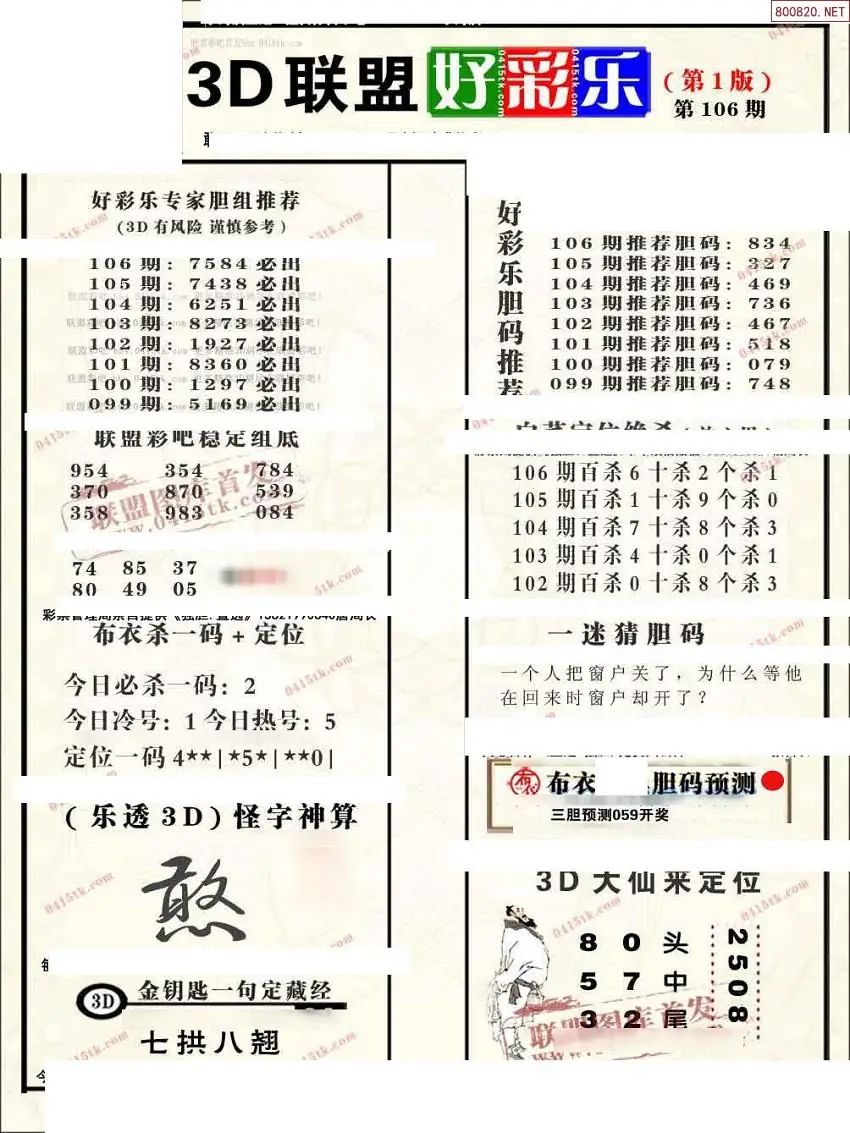 800820.NET
3D联盟好彩乐
0415tk.com
0415tk.com
(第1版)
第106期
好彩乐专家胆组推荐
(3D有风险 谨慎参考)
106期：7584必出
105期：7438必出
104期：6251必出
103期：8273必出
102期：1927必出
101期：8360必出
100期：1297必出
099期：5169必出
联盟彩吧稳定组底
954 354 784
370 870 539
358 983 084
联盟图库首发
www.0415tk.com
74 85 37
80 49 05
布衣杀一码+定位
今日必杀一码：2
今日冷号：1 今日热号：5
定位一码4**|*5*|**0|
(乐透3D)怪字神算
憨
3D 金钥匙一句定藏经
七拱八翘
好彩乐胆码推荐
106期推荐胆码：834
105期推荐胆码：327
104期推荐胆码：469
103期推荐胆码：736
102期推荐胆码：467
101期推荐胆码：518
100期推荐胆码：079
099期推荐胆码：748
106期百杀6十杀2个杀1
105期百杀1十杀9个杀0
104期百杀7十杀8个杀3
103期百杀4十杀0个杀1
102期百杀0十杀8个杀3
一迷猜胆码
一个人把窗户关了，为什么等他
在回来时窗户却开了？
布衣 布衣 胆码预测
三胆预测059开奖
3D大仙来定位
8 0 头
5 7 中
3 2 尾
2508
联盟图库首发
0415tk.com